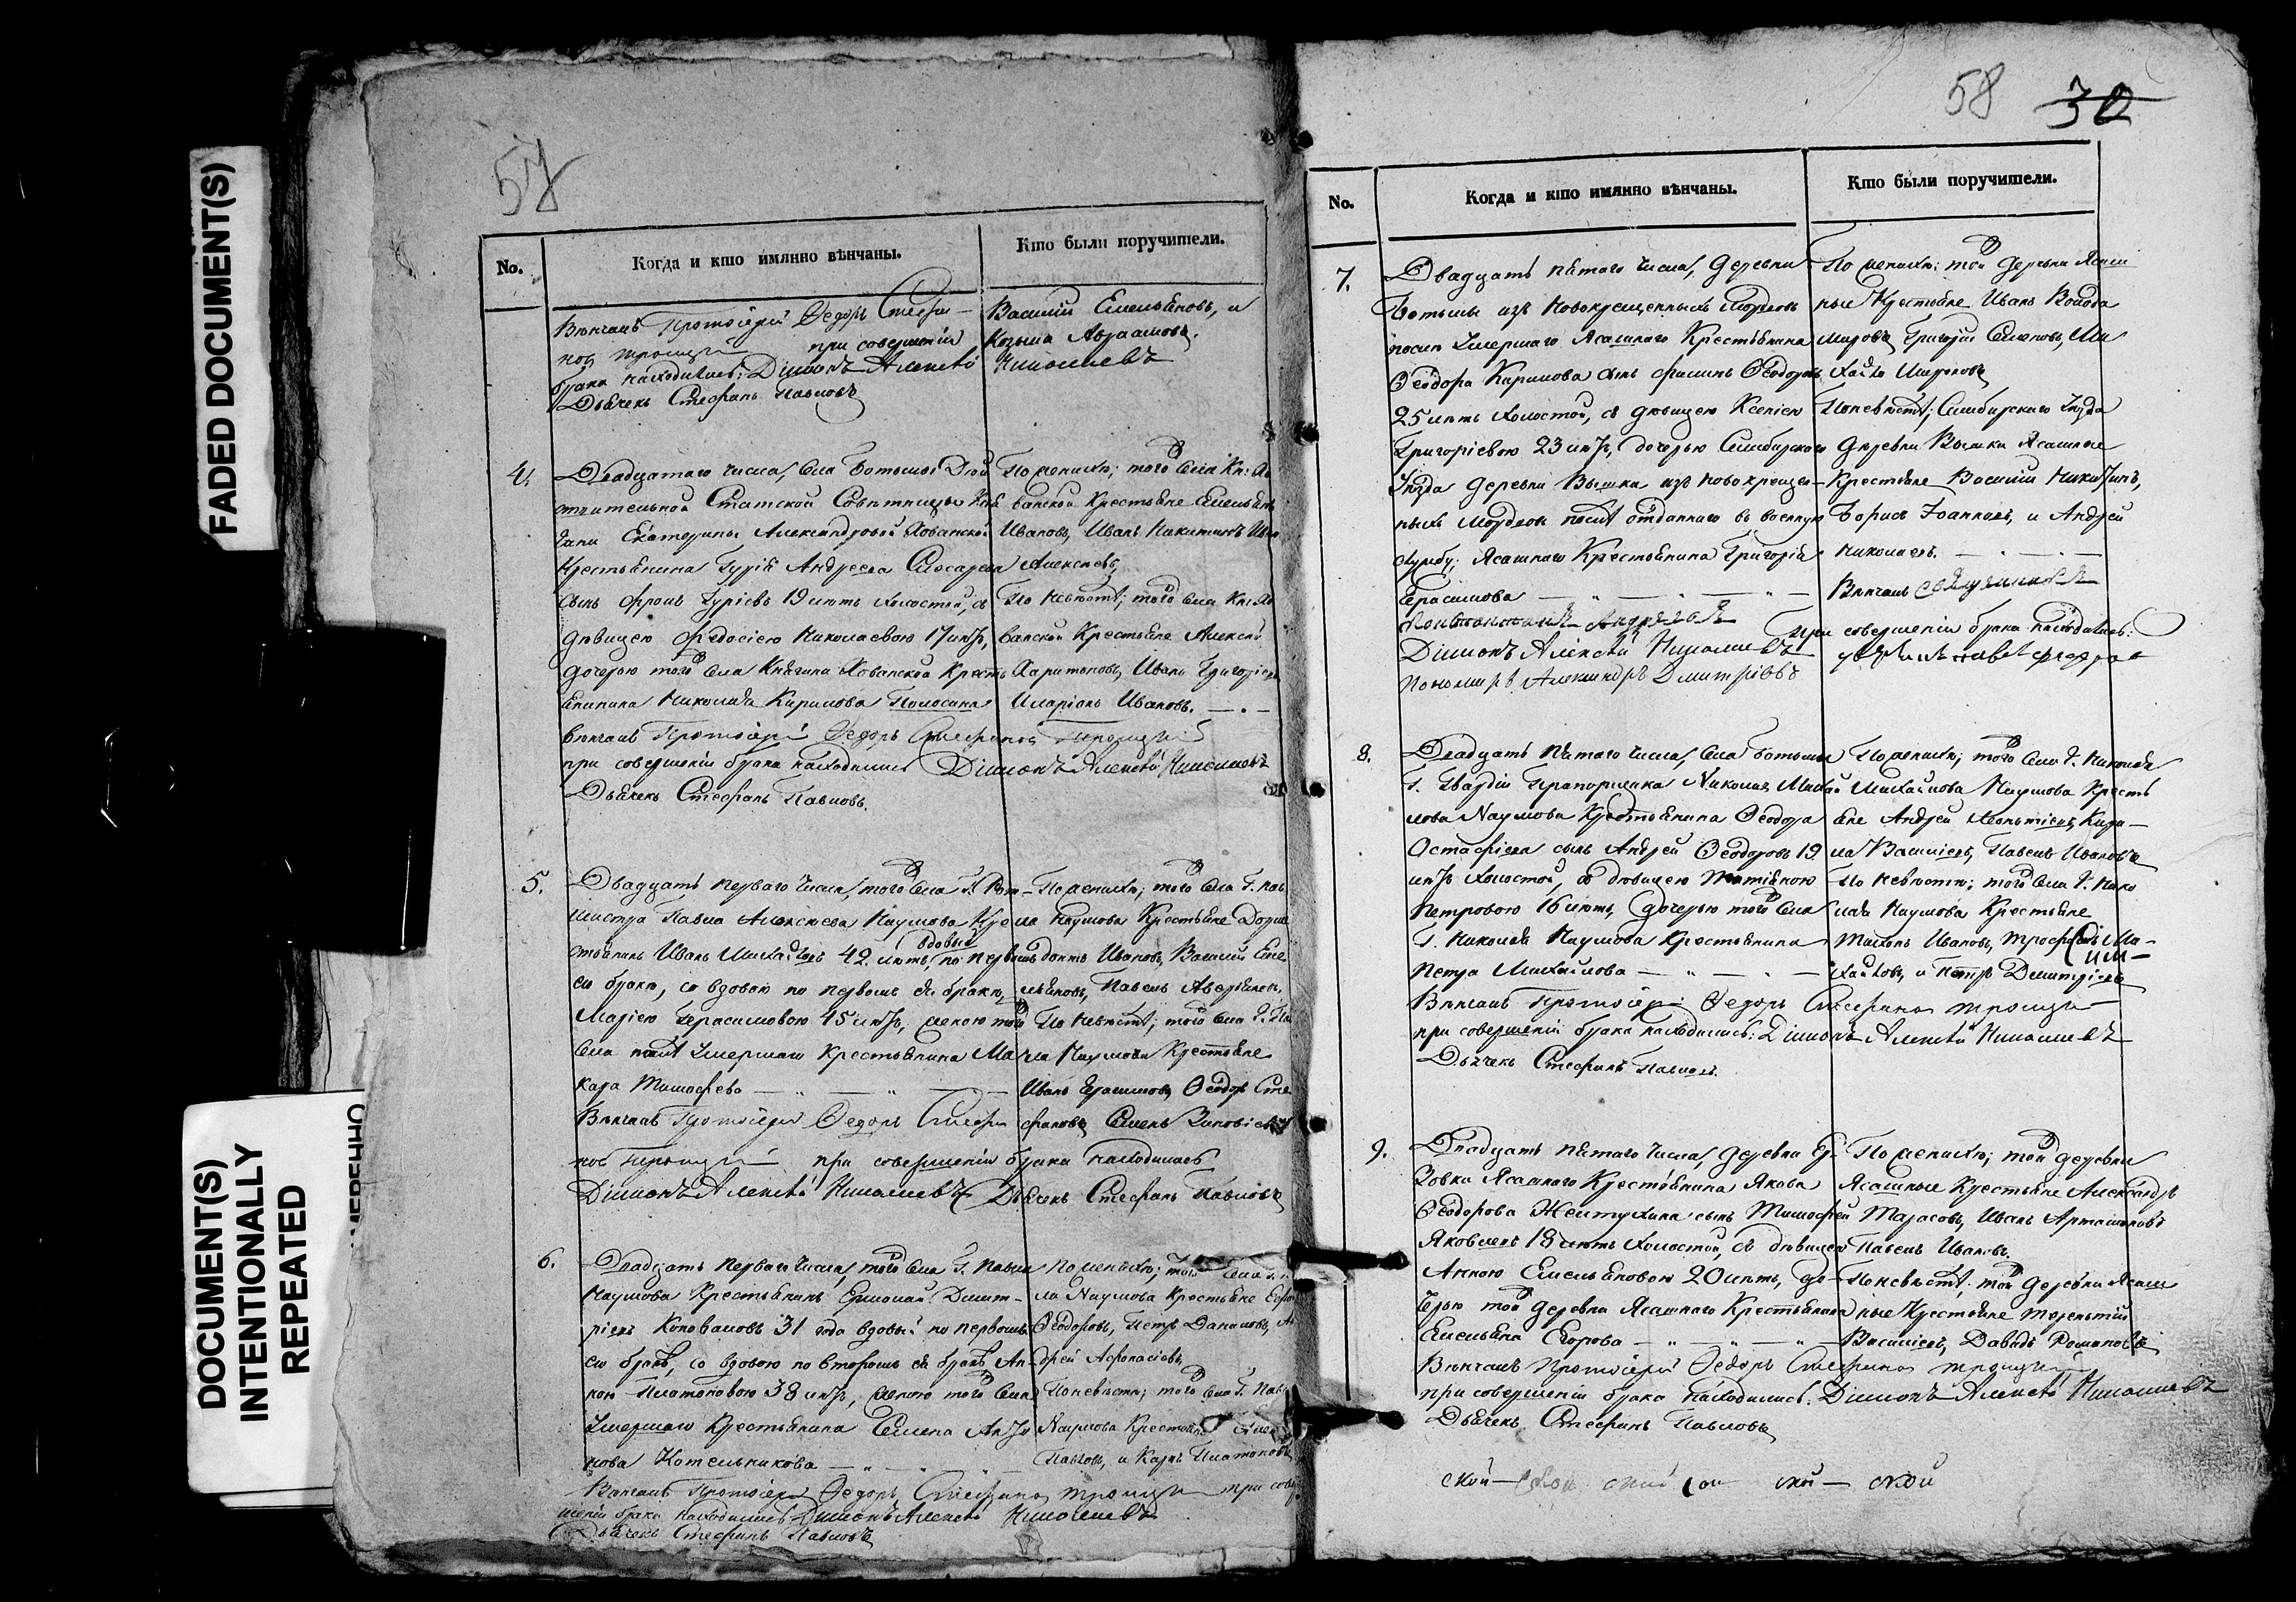 57
No.
Когда и кто имянно вѣнчаны.
Кто были поручители.
Вѣнчалъ Протоіерей Ѳедоръ Стефа-
новъ Троицкій при совершеніи
брака находились: Діаконъ Алексѣй
Николаевъ
Дьячекъ Стефанъ Павловъ
Василій Емельяновъ, и
Козьма Авраамовъ.
4.
Двадцатаго числа, села Ботьмы Дѣй
ствительной Статской Совѣтницы Кня
гини Екатерины Александровой Хованской
Крестьянина Гурія Андреева Слесарева
сынъ Фролъ Гуріевъ 19 лѣтъ холостой, съ
дѣвицею Федосіею Николаевою 17 лѣтъ,
дочерью того села Княгини Хованской Кресть
янина Николая Кирилова Полосина
вѣнчалъ Протоіерей Ѳедоръ Стефановъ Троицкій
при совершеніи брака находились Діаконъ Алексѣй Николаевъ
Дьячекъ Стефанъ Павловъ.
По женихѣ; того села Кн: Хо
ванской Крестьяне Емельянъ
Ивановъ, Иванъ Никитинъ
Алексѣевъ,
По невѣстѣ; того села Кн: Хо
ванской Крестьяне Алексѣй
Харитоновъ, Иванъ Григорьевъ
Иларіонъ Ивановъ.
5.
Двадцать перваго числа, того села Г. Рот-
мистра Павла Алексѣева Наумова Кре
стьянинъ Иванъ Михайловъ 42 лѣтъ, вдовый по первомъ
съ бракѣ, со вдовою по первомъ ея бракѣ,
Маріею Герасимовою 45 лѣтъ, женою того
села послѣ умершаго Крестьянина Ма
кара Тимофева
Вѣнчалъ Протоіерей Ѳедоръ Стефа
новъ Троицкій при совершеніи брака находились
Діаконъ Алексѣй Николаевъ Дьячекъ Стефанъ Павловъ
По женихѣ; того села Г. Пав
ла Наумова Крестьяне
Ивановъ, Василій Еме
льяновъ, Павелъ Аверьяновъ.
По невѣстѣ; того села Г. Па
вла Наумова Крестьяне
Иванъ Герасимовъ, Ѳеодоръ Сте
фановъ, Семенъ Зиновіевъ
6.
Двадцать перваго числа, того села Г. Павла
Наумова Крестьянинъ Ермолай Димит-
ріевъ Коноваловъ 31 года вдовый по первомъ
съ бракѣ, со вдовою по второмъ ея бракѣ, Ан-
ною Платоновою 38 лѣтъ, женою того села
умершаго Крестьянина Семена Анто
нова Котельникова
Вѣнчалъ Протоіерей Ѳедоръ Стефановъ Троицкій при совер
шеніи брака находились Діаконъ Алексѣй Николаевъ
Дьячекъ Стефанъ Павловъ
По женихѣ; того села Г. Па
вла Наумова Крестьяне
Ѳеодоровъ, Петръ Даниловъ, Ан
дрей Афонасіевъ
По невѣстѣ; того села Г. Пав
Наумова Крестьяне
Павловъ, и Карпъ Платоновъ
58 30
No.
Когда и кто имянно вѣнчаны.
Кто были поручители.
7.
Двадцать пятаго числа, деревни
Ботьмы изъ новокрещенныхъ мордовъ
послѣ умершаго Ясашнаго Крестьянина
Ѳеодора Кирилова сынъ Филипъ Ѳеодоровъ
25 лѣтъ холостой, съ дѣвицею Ксеніею
Григоріевою 23 лѣтъ, дочерью Симбирскаго
уѣзда деревни Вышки изъ новокрещен-
ныхъ мордовъ послѣ отданнаго въ военную
службу, Ясашнаго Крестьянина Григорія
Герасимова
Андреевъ
Діаконъ Алексѣй Николаевъ
Пономарь Александръ Дмитріевъ
По женихѣ; той деревни Ясаш
ные Крестьяне Иванъ Володи
мировъ, Григорій Семеновъ, Ми
хайла Мироновъ
По невѣстѣ; Симбирскаго уѣзда
деревни Вышки Ясашные
Крестьяне Василій Никитинъ,
Борисъ Іоанновъ, и Андрей
Николаевъ.
Вѣнчалъ Священникъ
при совершеніи брака находились:
8.
Двадцать пятаго числа, села Ботьмы
Г. Гвардіи Прапорщика Николая Михай
лова Наумова Крестьянина Ѳеодора
Остафіева сынъ Андрей Ѳеодоровъ 19
лѣтъ холостой, съ дѣвицею Татіяною
Петровою 16 лѣтъ, дочерью того села
Г. Николая Наумова Крестьянина
Петра Михайлова
Вѣнчалъ Протоіерей Ѳедоръ Стефановъ Троицкій
при совершеніи брака находились: Діаконъ Алексѣй Николаевъ
Дьячекъ Стефанъ Павловъ.
По женихѣ; того села Г. Николая
Михайлова Наумова Кресть
яне Андрей Леонтіевъ, Кири-
ла Василіевъ, Павелъ Ивановъ
По невѣстѣ; того села Г. Нико
лая Наумова Крестьяне
Тихонъ Ивановъ, Трофимъ Ми-
хайловъ, и Петръ Димитріевъ
9.
Двадцать пятаго числа, деревни Ер-
зовки Ясашнаго Крестьянина Якова
Ѳеодорова Желтухина сынъ Тимофей
Яковлевъ 18 лѣтъ холостой, съ дѣвицею
Анною Емельяновою 20 лѣтъ, до-
черью той деревни Ясашнаго Крестьянина
Емельяна Егорова
Вѣнчалъ Протоіерей Ѳедоръ Стефановъ Троицкій
при совершеніи брака находились: Діаконъ Алексѣй Николаевъ
Дьячекъ Стефанъ Павловъ
По женихѣ; той деревни
Ясашные Крестьяне Александръ
Тарасовъ, Иванъ Артамоновъ
Павелъ Ивановъ.
По невѣстѣ; той деревни Ясаш
ные Крестьяне Терентій
Василіевъ, Давыдъ Романовъ
ской ской
FADED DOCUMENT(S)
DOCUMENT(S)
INTENTIONALLY
REPEATED